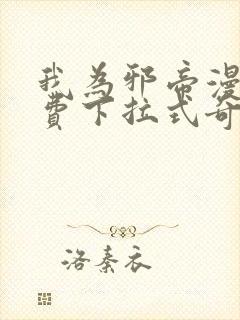 我為邪帝漫
費下拉式奇
洛秦衣